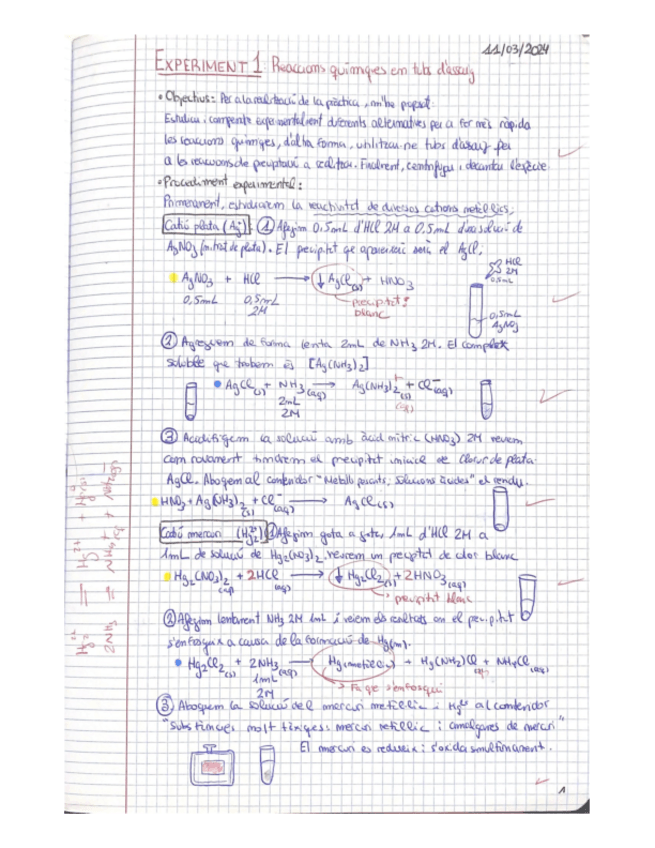 11/03/2024
EXPERIMENT 1: Reaccions químiques em tubs d'assaig
• Objectius: Per a la realització de la pràctica, m'he proposat
Estudiar i comparar experimentalment diferents alternatives per a fer més ràpida
les reaccions químiques, d'altra forma, utilitzar-ne tubs d'assaig per
a les reaccions de precipitació a realitzar. Finalment, centrifugar i decantar l'espècie
• Procediment experimental:
Primerament, estudiarem la reactivitat de diversos cations metàl·lics.
Catió plata (Ag+): ① Afegim 0,5mL d'HCl 2M a 0,5mL d'una solució de
AgNO3 (nitrat de plata). El precipitat que apareixerà serà el AgCl.
AgNO3 + HCl → ↓AgCl(s) + HNO3
0,5mL 0,5mL 2M
precipitat blanc
HCl 2M 0,5mL
0,5mL AgNO3
② Agreguem de forma lenta 2mL de NH3 2M. El complex
soluble que trobem és [Ag(NH3)2]
• AgCl(s) + NH3(aq) → Ag(NH3)2+(s) + Cl-(aq)
2mL 2M
(aq)
③ Acidifiquem la solució amb àcid nítric (HNO3) 2M veurem
com novament tindrem el precipitat inicial de clorur de plata
AgCl. Abogem al contenidor "Metalls pesants; solucions àcides" el residu.
HNO3 + Ag(NH3)2(s) + Cl-(aq) → AgCl(s)
Catió mercuri (Hg2 2+) ① Afegim gota a gota, 1mL d'HCl 2M a
1mL de solució de Hg2(NO3)2 veurem un precipitat de color blanc
Hg2(NO3)2(aq) + 2HCl(aq) → ↓Hg2Cl2(s) + 2HNO3(aq)
precipitat blanc
② Afegim lentament NH3 2M 1mL i veiem com el precipitat
s'enfosqueix a causa de la formació de Hg(m).
• Hg2Cl2(s) + 2NH3(aq) → Hg(metàl·lic) + Hg(NH2)Cl + NH4Cl(aq)
1mL 2M
Fa que s'enfosqueixi
③ Aboquem la solució del mercuri metàl·lic i Hg2+ al contenidor
"Substàncies molt tòxiques: mercuri metàl·lic i amalgames de mercuri"
El mercuri es redueix i s'oxida simultàniament.
1